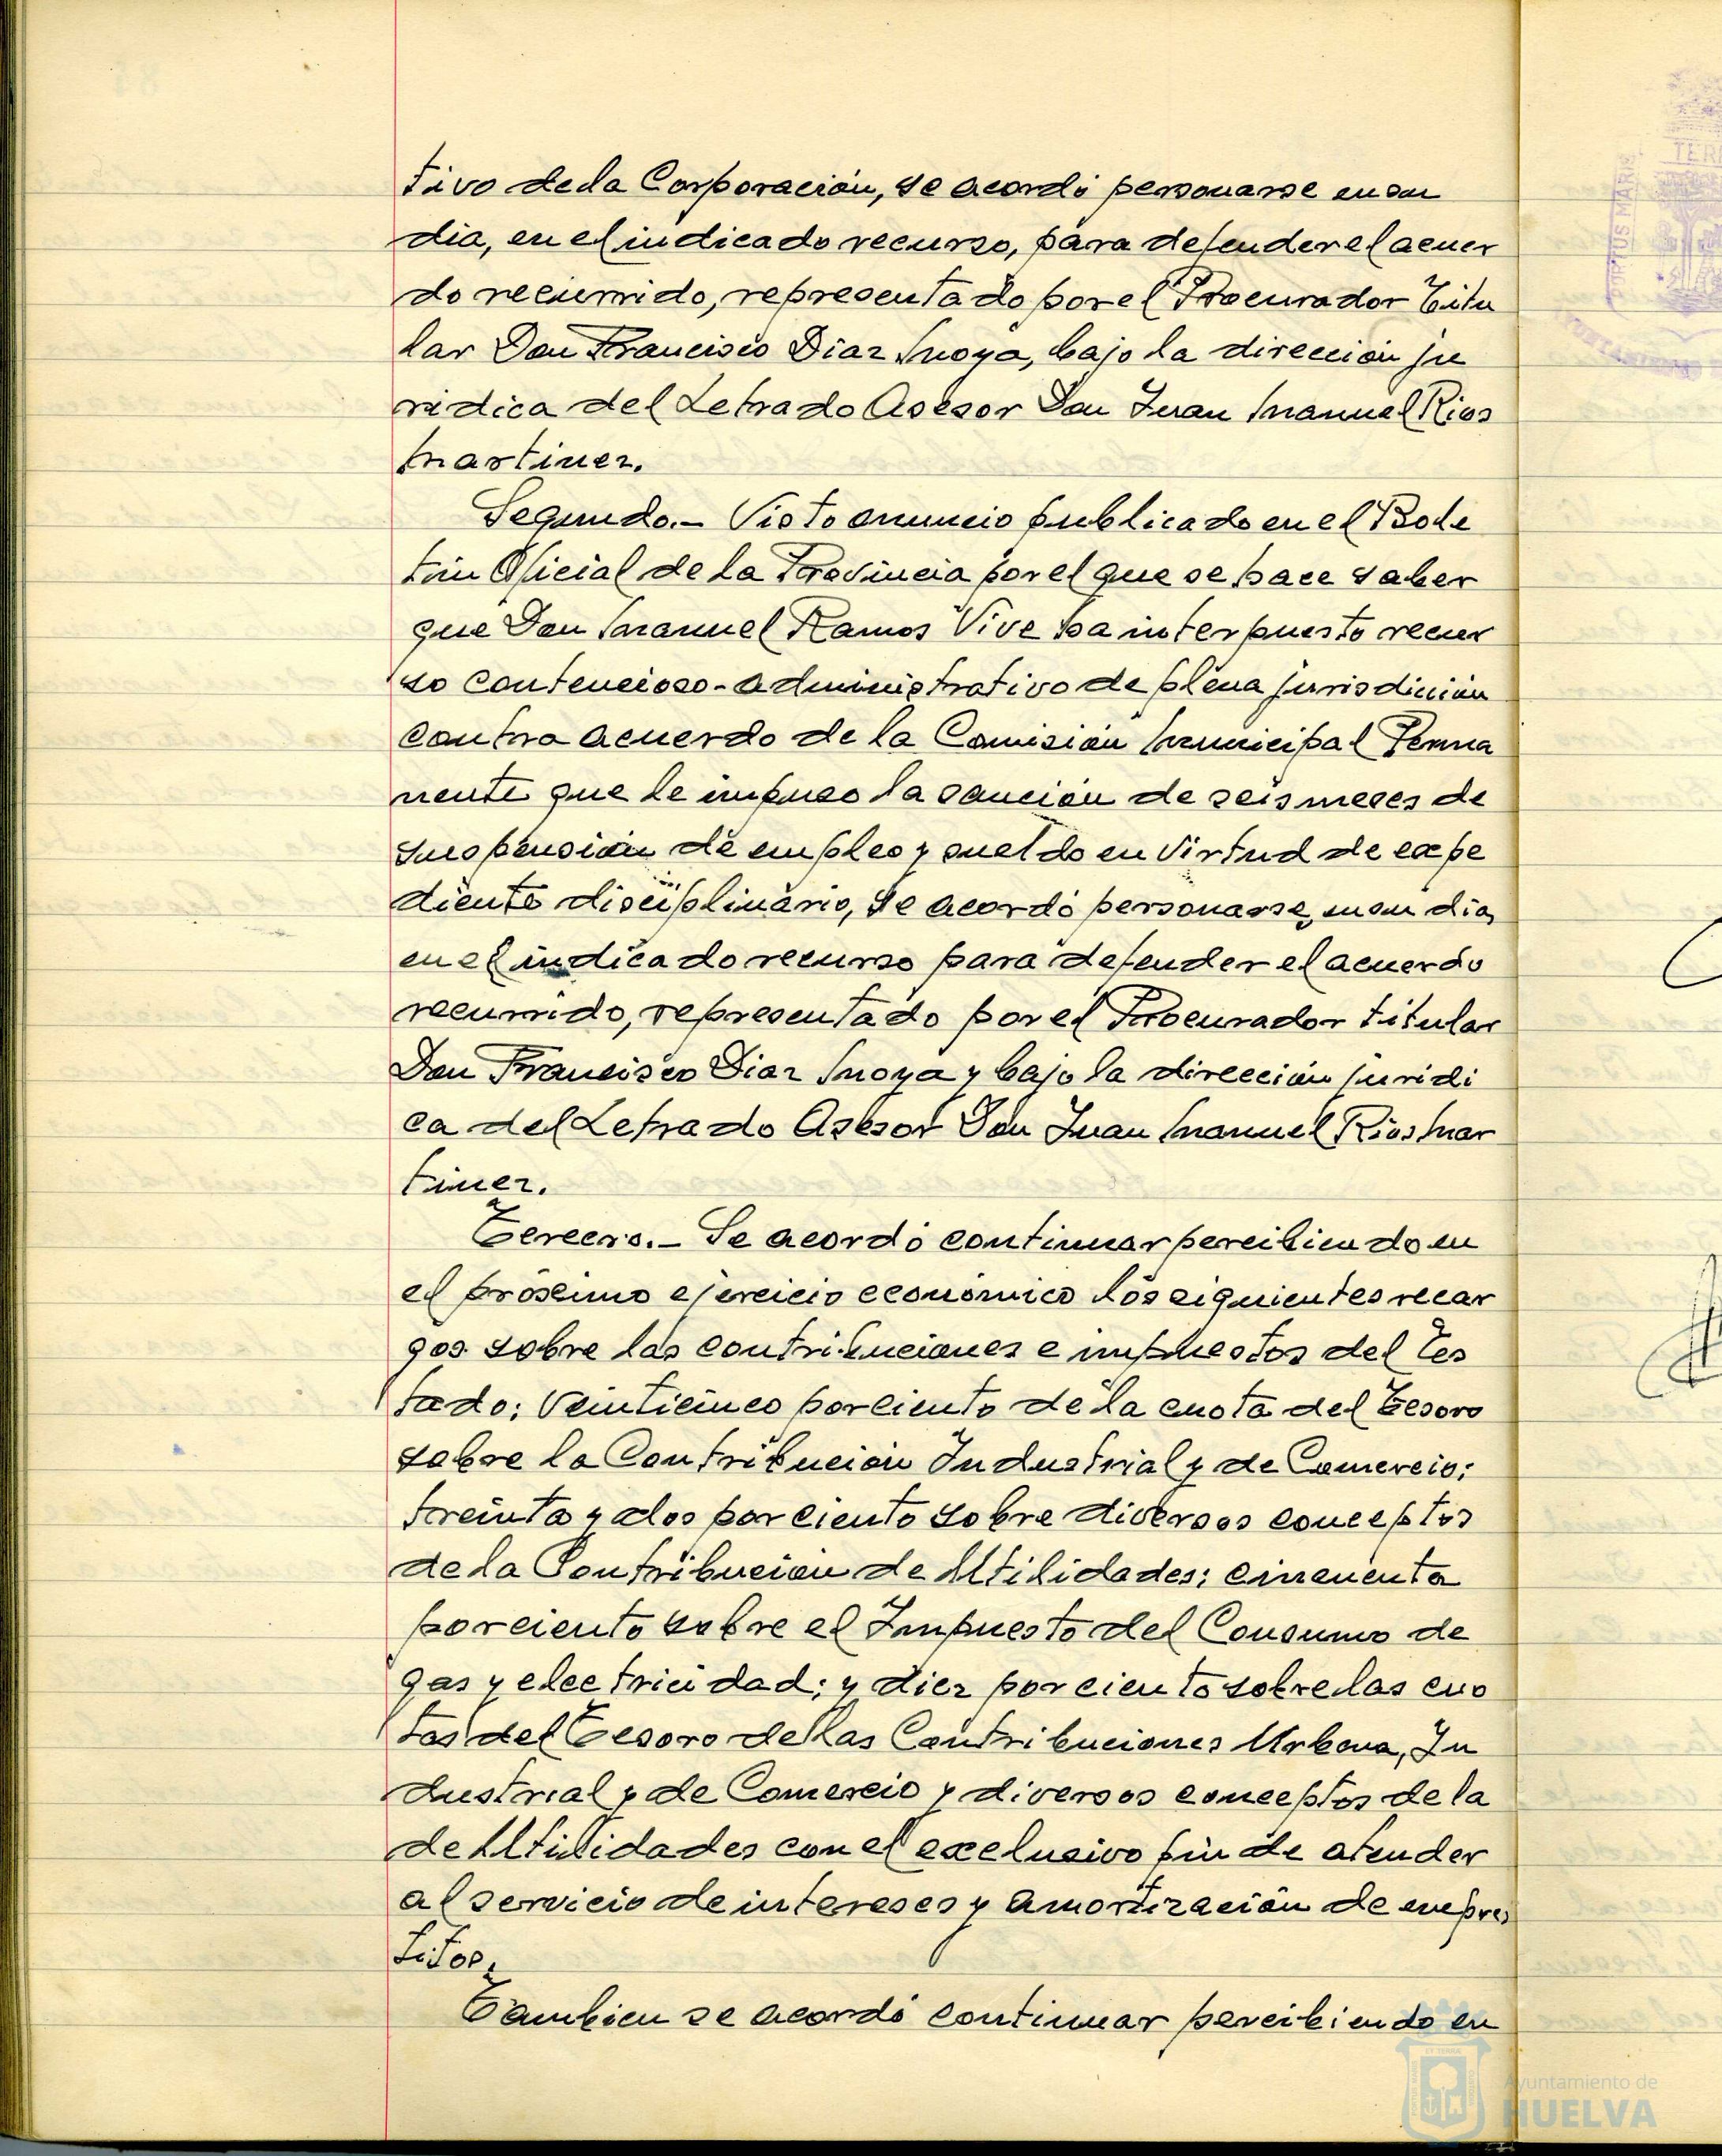 tivo de la Corporación, se acordó personarse en su
dia, en el indicado recurso, para defender el acuer
do recurrido, representado por el Procurador Titu
lar Don Francisco Diaz Moya, bajo la dirección ju
ridica del Letrado Asesor Don Juan Manuel Rios
Martinez.
Segundo.- Visto anuncio publicado en el Bole
tin Oficial de la Provincia por el que se hace saber
que Don Manuel Ramos Vive ha interpuesto recur
so contencioso-administrativo de plena jurisdicción
contra acuerdo de la Comisión Municipal Perma
nente que le impuso la sanción de seis meses de
suspensión de empleo y sueldo en virtud de expe
diente disciplinario, se acordó personarse, en su dia,
en el indicado recurso para defender el acuerdo
recurrido, representado por el Procurador titular
Don Francisco Diaz Moya y bajo la dirección juridi
ca del Letrado Asesor Don Juan Manuel Rios Mar
tinez.
Tercero.- Se acordó continuar percibiendo en
el próximo ejercicio económico los siguientes recar
gos sobre las contribuciones e impuestos del Es
tado: Veinticinco por ciento de la cuota del Tesoro
sobre la Contribución Industrial y de Comercio;
treinta y dos por ciento sobre diversos conceptos
de la Contribución de Utilidades; cincuenta
por ciento sobre el Impuesto del Consumo de
gas y electricidad; y diez por ciento sobre las cuo
tas del Tesoro de las Contribuciones Urbana, In
dustrial y de Comercio y diversos conceptos de la
de Utilidades con el exclusivo fin de atender
al servicio de intereses y amortización de empres
titos.
Tambien se acordó continuar percibiendo en
PORTUS MARIS
Ayuntamiento de
HUELVA